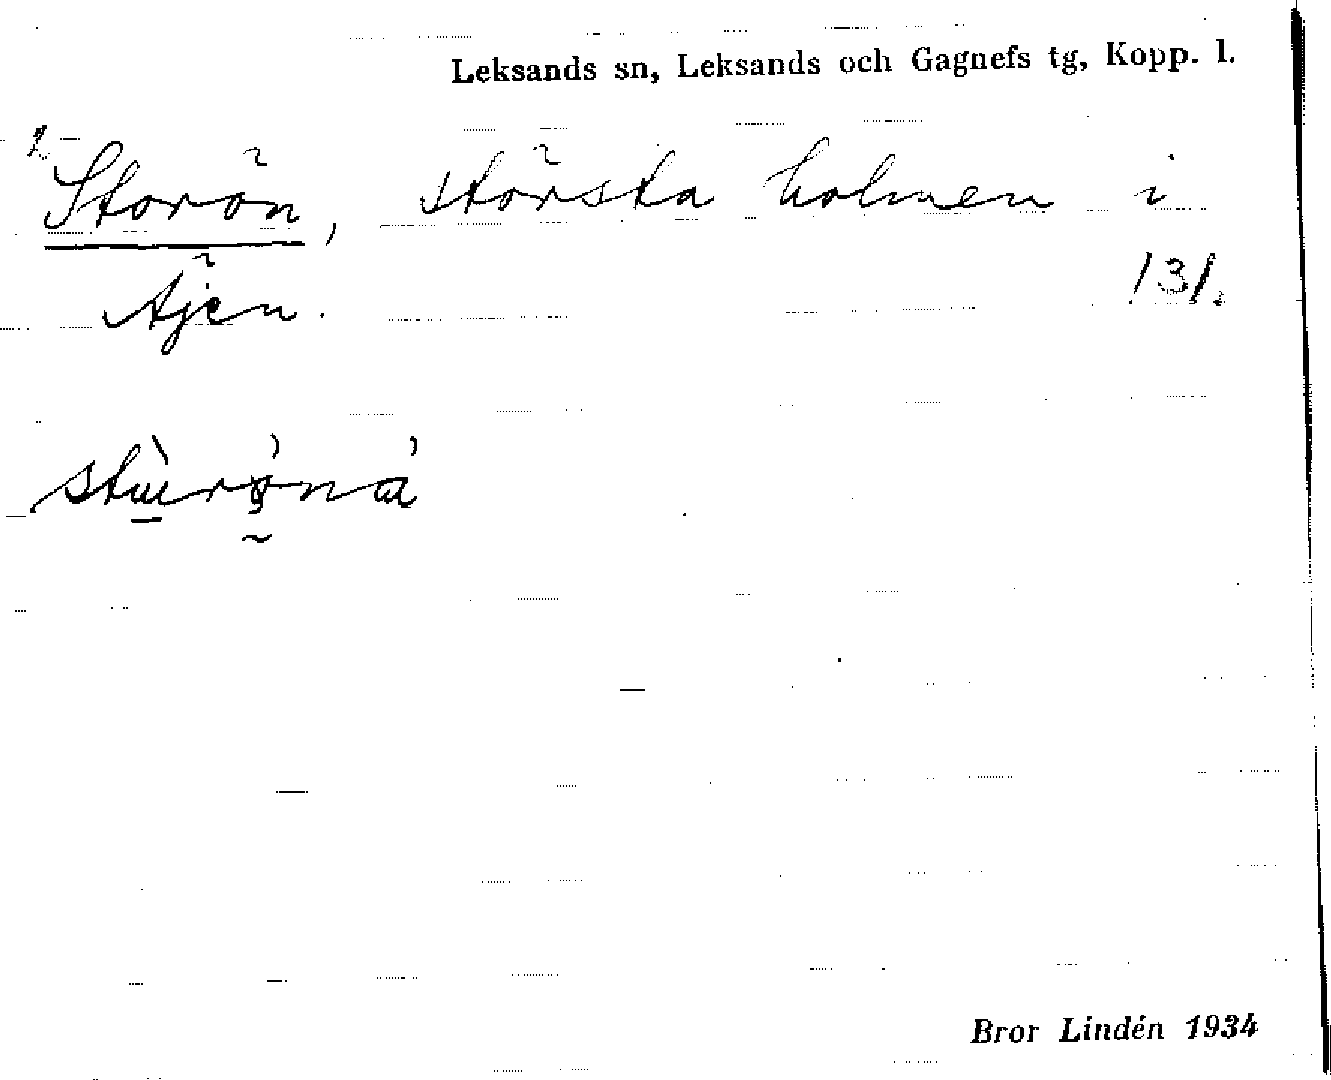 Leksands sn, Leksands och Gagnefs tg, Kopp. l.
1. Storön, största holmen i
Äjen. 131.
Bror Lindén 1934